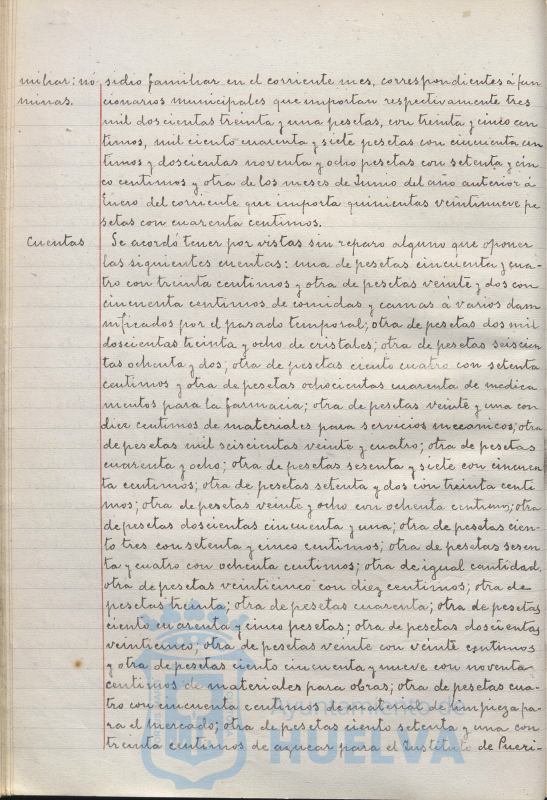 miliar: nó sidio familiar en el corriente mes, correspondientes á fun
minas. cionarios municipales que importan respectivamente tres
mil doscientas treinta y una pesetas, con treinta y cinco cen
timos, mil ciento cuarenta y siete pesetas con cincuenta cen
timos y doscientas noventa y ocho pesetas con setenta y cin
co centimos y otra de los meses de Junio del año anterior á
Enero del corriente que importa quinientas veintinueve pe
setas con cuarenta centimos.
Cuentas Se acordó tener por vistas sin reparo alguno que oponer
las siguientes cuentas: una de pesetas cincuenta y cua-
tro con treinta centimos y otra de pesetas veinte y dos con
cincuenta centimos de comidas y camas á varios dam
nificados por el pasado temporal; otra de pesetas dos mil
doscientas treinta y ocho de cristales; otra de pesetas seiscien
tas ochenta y dos; otra de pesetas ciento cuatro con setenta
centimos y otra de pesetas ochocientas cuarenta de medica
mentos para la farmacia; otra de pesetas veinte y una con
diez centimos de materiales para servicios mecanicos; otra
de pesetas mil seiscientas veinte y cuatro; otra de pesetas
cuarenta y ocho; otra de pesetas sesenta y siete con cincuen
ta centimos; otra de pesetas setenta y dos con treinta centi
mos; otra de pesetas veinte y ocho con ochenta centimos; otra
de pesetas doscientas cincuenta y una; otra de pesetas cien-
to tres con setenta y cinco centimos; otra de pesetas sesen
ta y cuatro con ochenta centimos; otra de igual cantidad,
otra de pesetas veinticinco con diez centimos; otra de
pesetas treinta; otra de pesetas cuarenta; otra de pesetas
ciento cuarenta y cinco pesetas; otra de pesetas doscientas
veinticinco; otra de pesetas veinte con veinte centimos
y otra de pesetas ciento cincuenta y nueve con noventa
centimos de materiales para obras; otra de pesetas cua-
tro con cincuenta centimos de material de limpieza pa-
ra el mercado; otra de pesetas ciento setenta y una con
treinta centimos de azucar para el Instituto de Pueri-
Ayuntamiento de
HUELVA